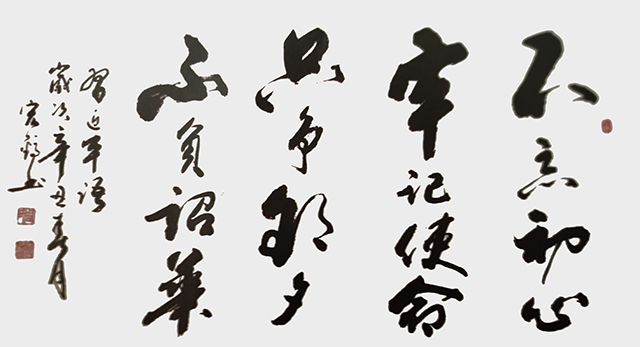 不忘初心
牢记使命
只争朝夕
不负韶华
习近平语
岁次辛丑春月